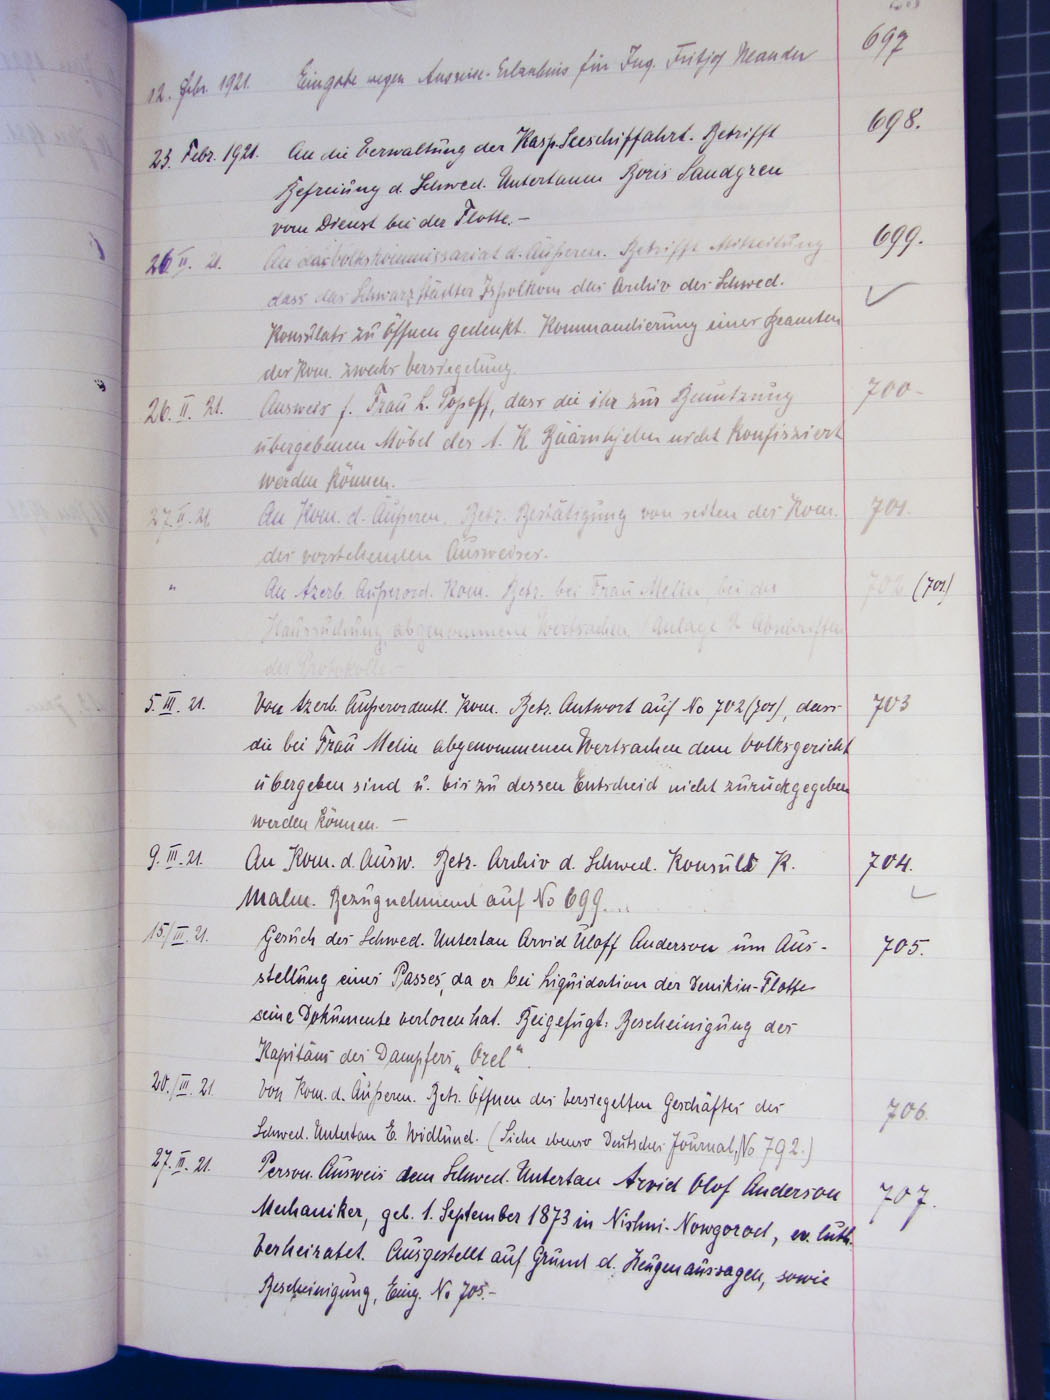 12. Febr. 1921. Eingabe wegen Ausreise-Erlaubnis für Ing. Fritjof Neander 697
23. Febr. 1921. An die Verwaltung der Kasp. Seeschiffahrt. Betrifft 698.
Befreiung d. Schwed. Untertanen Boris Sandgren
vom Dienst bei der Flotte.—
26. II. 21. An das Volkskommissariat d. Äußeren. Betrifft Mitteilung 699.
dass das Schwarzstädter Ispolkom das Archiv des Schwed.
Konsulats zu öffnen gedenkt. Kommandierung einer Beamten
der Kom. zwecks Versiegelung.
26. II. 21. Ausweis f. Frau L. Popoff, dass die ihr zur Benutzung 700-
übergebenen Möbel des A. K. nicht konfisziert
werden können.—
27. II. 21. An Kom. d. Äußeren. Betr. Bestätigung von seiten des Kom. 701.
des vorstehenden Ausweises.
" An Azerb. Außerord. Kom. Betr. bei Frau Melin, bei der 702 (701)
Haussuchung abgenommene Wertsachen. Anlage 2 Abschriften
der Protokolle.—
5. III. 21. Von Azerb. Außerordentl. Kom. Betr. Antwort auf No 702 (701), dass 703
die bei Frau Melin abgenommenen Wertsachen dem Volksgericht
übergeben sind u. bis zu dessen Entscheid nicht zurückgegeben
werden können.—
9. III. 21. An Kom. d. Ausw. Betr. Archiv d. Schwed. Konsuls K. 704.
Malm. Bezugnehmend auf No 699...
15/III. 21. Gesuch des Schwed. Untertan Arvid Uloff Anderson um Aus- 705.
stellung eines Passes, da er bei Liquidation der Denikin-Flotte
seine Dokumente verloren hat. Beigefügt: Bescheinigung des
Kapitäns des Dampfers „Orel".
20./III. 21. Von Kom. d. Äußeren. Betr. Öffnen des versiegelten Geschäftes des 706.
Schwed. Untertan E. Widlund. (Siehe ebenso Deutsches Journal, No 792.)
27. III. 21. Person. Ausweis dem Schwed. Untertan Arvid Olof Anderson 707.
Mechaniker, geb. 1. September 1873 in Nishni-Nowgorod, ev. luth.
verheiratet. Ausgestellt auf Grund d. Zeugenaussagen, sowie
Bescheinigung, Eing. No 705.—